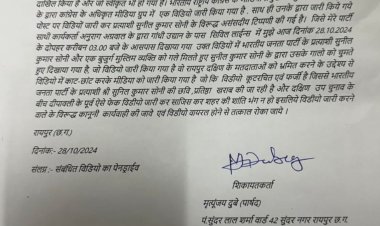 दाखिल किया है जो स्वीकृत भी हो गया है। भारतीय राष्ट्रीय कांग्रेस के
के द्वारा कांग्रेस के अधिकृत मीडिया ग्रुप में एक विडियो जारी किया गया है, साथ ही उनके द्वारा जारी किये गये
पोस्ट पर विडियो जारी कर प्रत्याशी सुनील कुमार सोनी के विरूद्ध असंसदीय टिप्पणी की गई है। जिसे मेरे पार्टी
साथी कार्यकर्ता अनुराग अग्रवाल के द्वारा गांधी उद्यान के पास सिविल लाईन्स में मुझे आज दिनांक 28.10.2024
के दोपहर करीबन 03.00 बजे के आसपास दिखाया गया उक्त विडियों में भारतीय जनता पार्टी के प्रत्याशी सुनील
कुमार सोनी और एक बुजुर्ग मुस्लिम व्यक्ति को गले मिलते हुए सुनील कुमार सोनी के द्वारा उसके गालों को चुमते
हुए दिखाया गया है, जो विडियों जारी किया गया है वो रायपुर दक्षिण के मतदाताओं को भ्रमित करने के उद्देश्य से
विडियों में काट छांट करके मीडिया को जारी किया गया है जो कि विडियो कूटरचित एवं फर्जी है जिससे भारतीय
जनता पार्टी के प्रत्याशी श्री सुनील कुमार सोनी की छवी ,प्रतिष्ठा खराब की जा रही है और दक्षिण उप चुनाव के
बीच दीपावली के पूर्व ऐसे फेक विडीयो जारी कर साजिस कर शहर की शांति भंग न हो इसलिये विडीयो जारी करने
वाले के विरूद्ध कानुनी कार्यवाही की जावे एवं विडीयो वायरल होने से तत्काल रोका जावे ।
रायपुर (छ.ग.)
दिनांक:- 28/10/2024
संलग्न :- संबंधित विडियो का पेनड्राईव
शिकायतकर्ता
मृत्यूंजय दुबे (पार्षद)
पं.सुंदर लाल शर्मा वार्ड 42 सुंदर नगर रायपुर छ.ग.